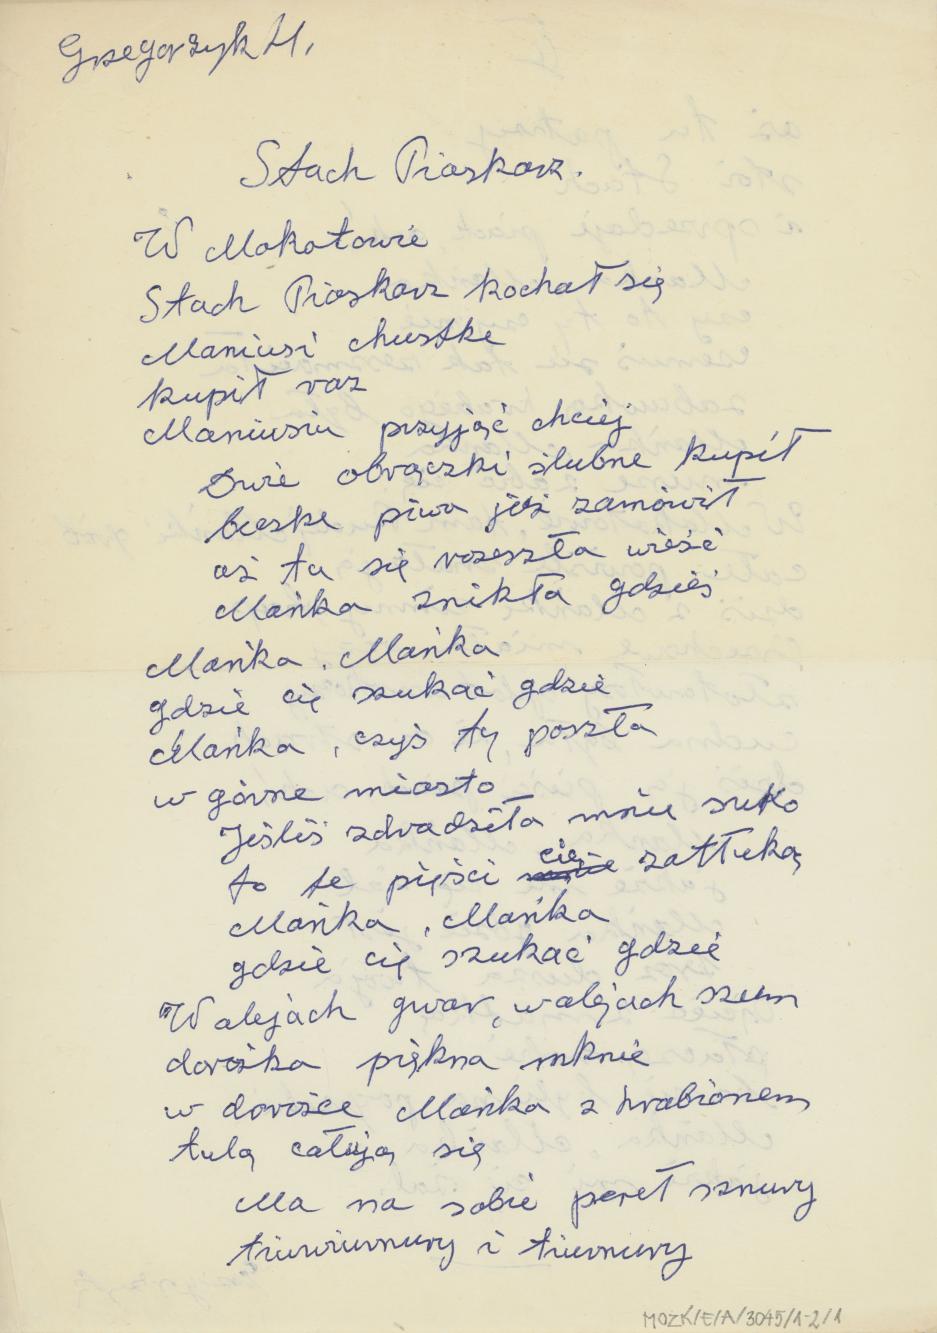 Grzegorzyk H.
Stach Piaskarz.
W Mokotowie
Stach Piaskarz kochał się
Maniusi chustke
kupił raz
Maniusiu przyjąć chciej
Dwie obrączki ślubne kupił
beczke piwa już zamówił
aż tu się rozeszła wieść
Mańka znikła gdzieś
Mańka, Mańka
gdzie cię szukać gdzie
Mańka, czyś ty poszła
w górne miasto
Jeśliś zdradziła mnie suko
to te pięści cię zatłuką
Mańka, Mańka
gdzie cię szukać gdzie
W alejach gwar, w alejach szum
dorożka piękna mknie
w dorożce Mańka z hrabionem
tulą całują się
Ma na sobie pereł sznury
i
MOZK/E/A/3045/1-2/1